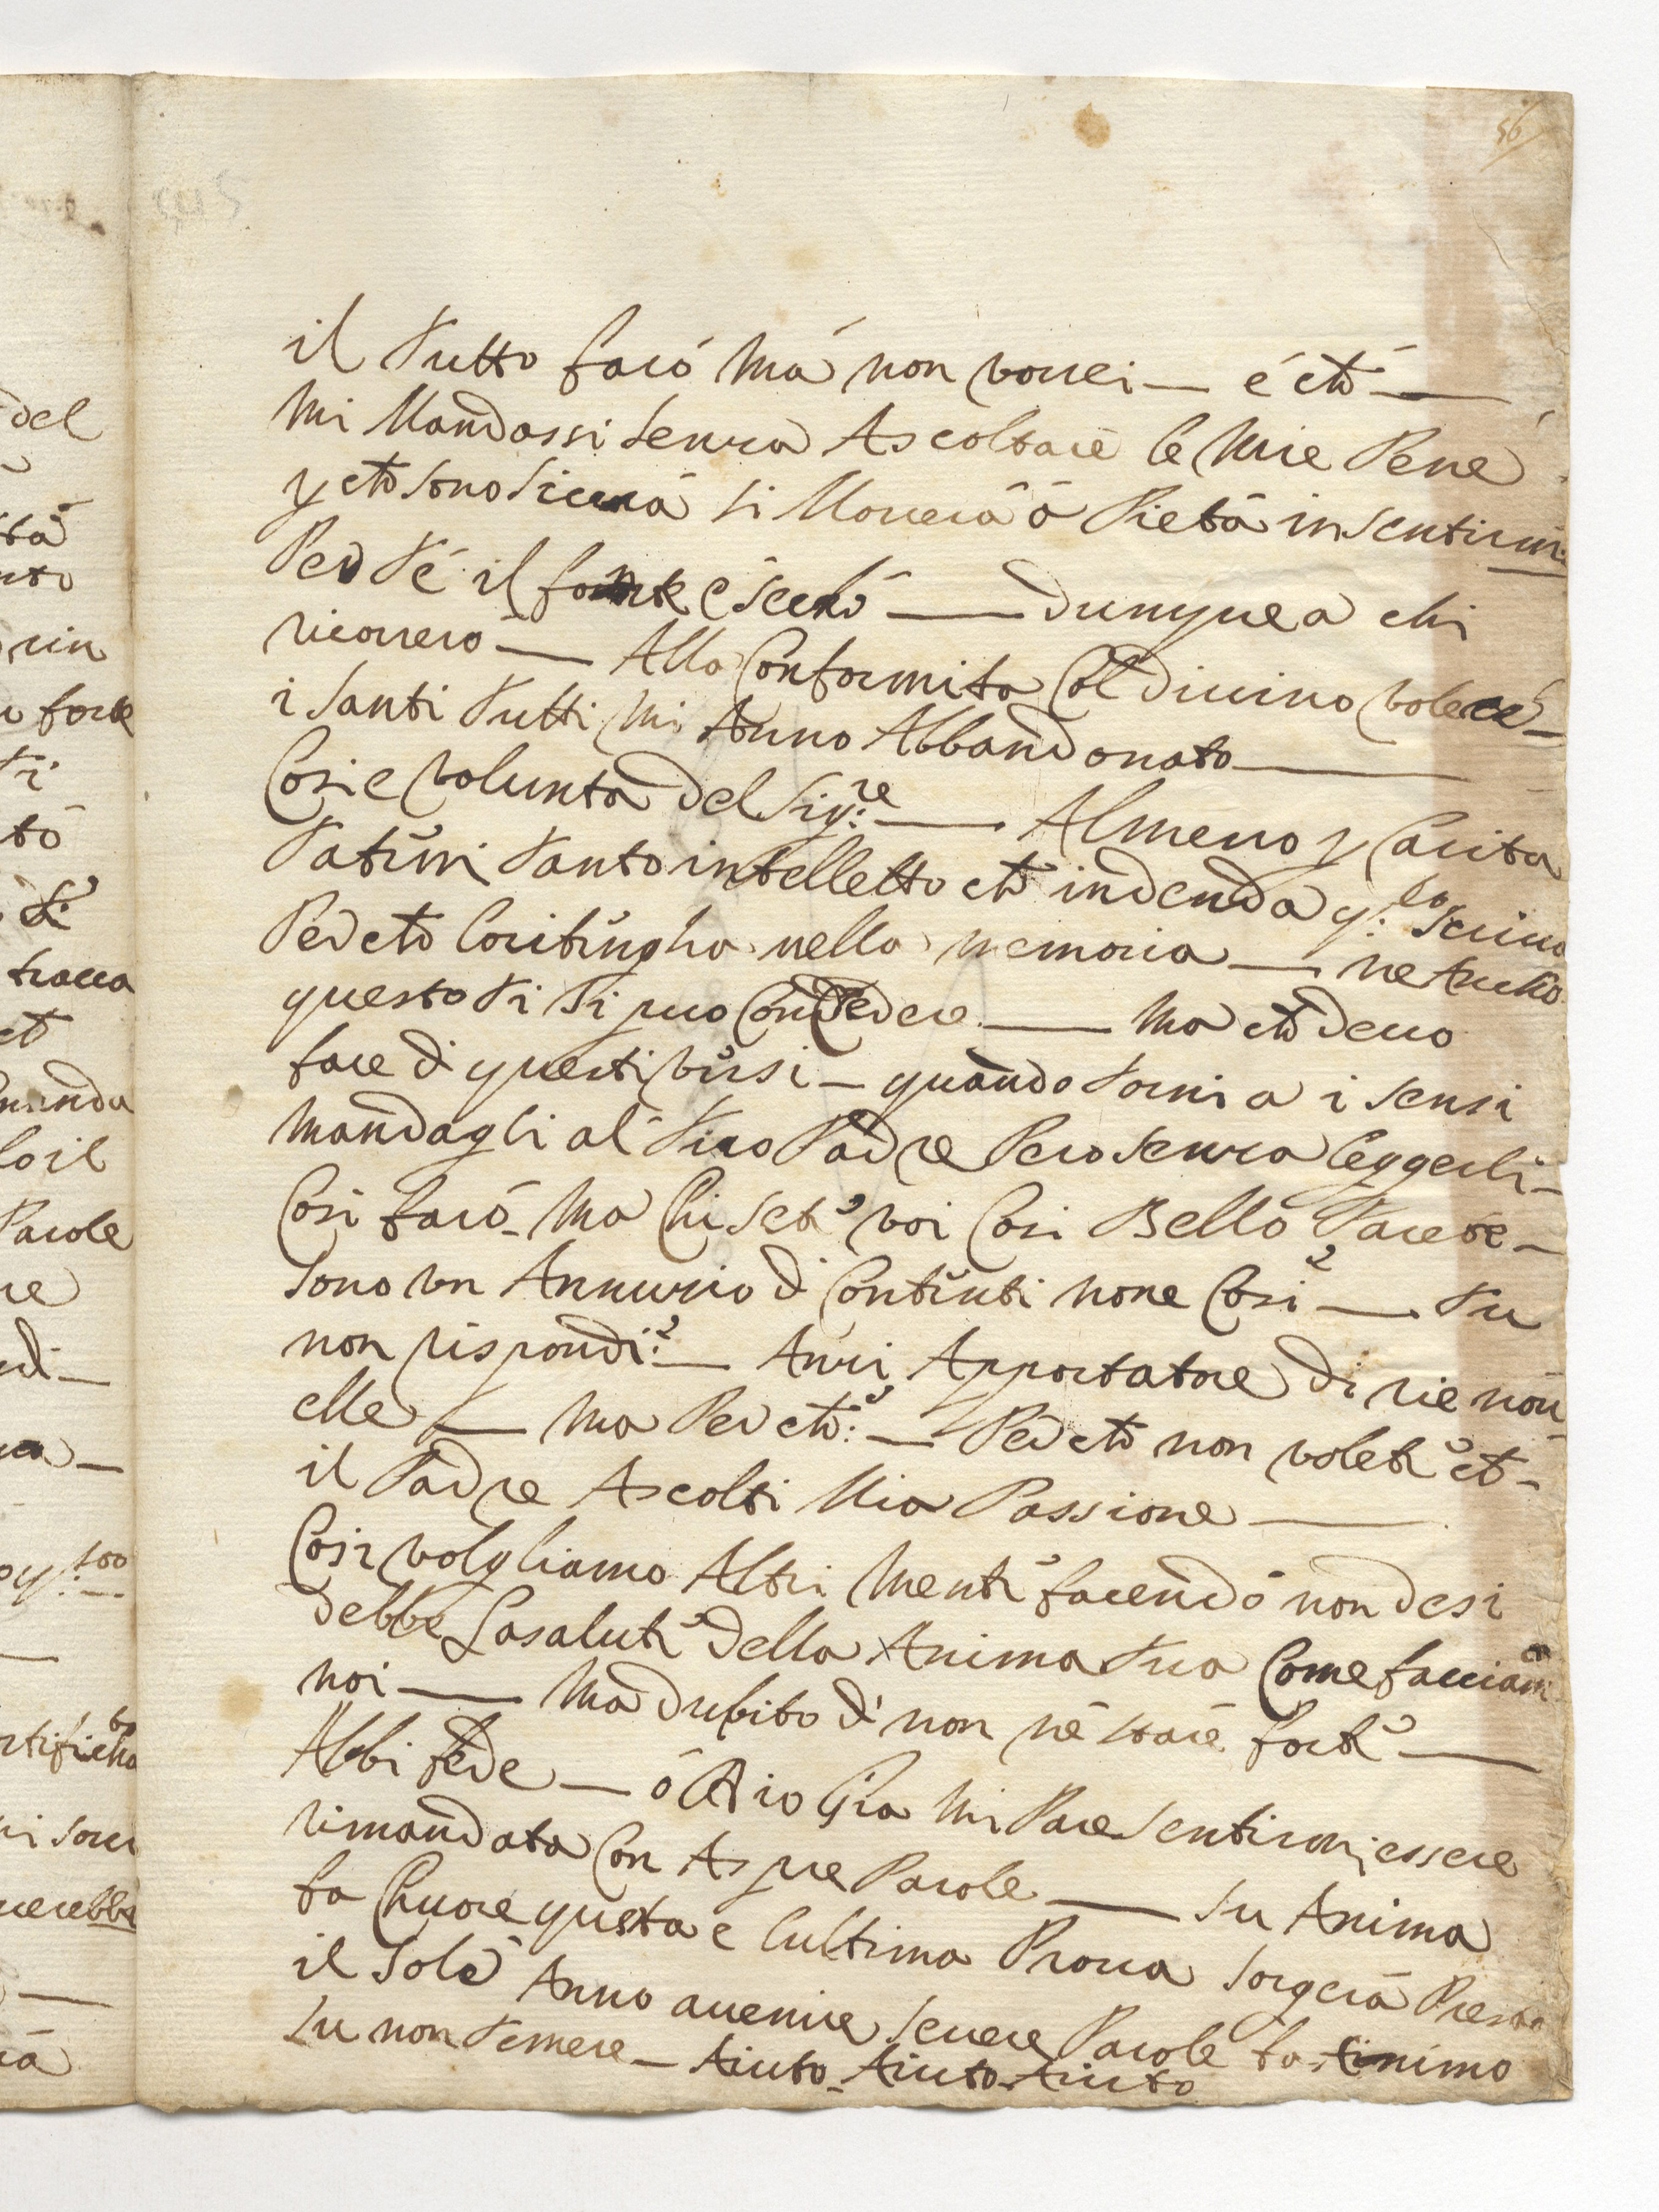 56
il Tutto farò mà non vorrei — é ch̃é —
Mi Mandassi senza Ascoltare le Mie Pene
p ch̃e sono sicurà si Mouerà à Pietà in sentirmi
Per Té il fonte é secho — dunque a chi
ricorrerò — Alla Conformita Col diuino volere —
i santi Tutti mi Anno Abbandonato —
Cosi e volunta del Sig:re — Almeno p Carita
Tatimi Tanto intelletto ch̃e indenda q:lo scriuo
Per ch̃e loritingha nella memoria — ne Ancho
questo Ti si puo Concedere — Ma ch̃e deuo
fare di questi virsi — quando Torni a i sensi
Mandagli al Tuo Padre Pero senza leggerli —
Cosi farò — Ma Chi seti voi Cosi Bello Tacete —
sono un Annuzio di Contenti none Cosi — Tu
non rispondi: — Anzi Apportatore di rie nou
elle — Ma Per ch̃e: — Per ch̃e non voleti ch̃ —
il Padre Ascolti Mia Passione —
Cosi volgliamo Altri Menti facendo non desi
debbe La saluti della Anima Tua Come facciam
noi — Ma dubito di non nè stare forti —
Abbi fede — ò Dio Gia Mi Pare sentirmi essere
rimandata Con Aspre Parole — su Anima
fa Chuore questa e lultima Proua sorgerà Presto
il sole Anno auenire seuere Parole fa Animo
su non Temere — Aiuto — Aiuto Aiuto